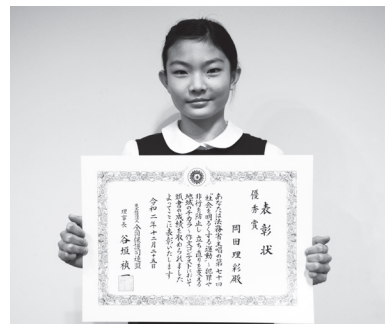 表彰状
優秀賞
岡田理彩殿
あなたは法務省主唱の第七十回
“社会を明るくする運動”～犯罪や
非行を防止し立ち直りを支える
地域のチカラ～作文コンテストにおいて
頭書の成績を収められました
よってここに表彰いたします
令和二年十二月二十五日
全国保護司連盟
理事長 谷垣禎